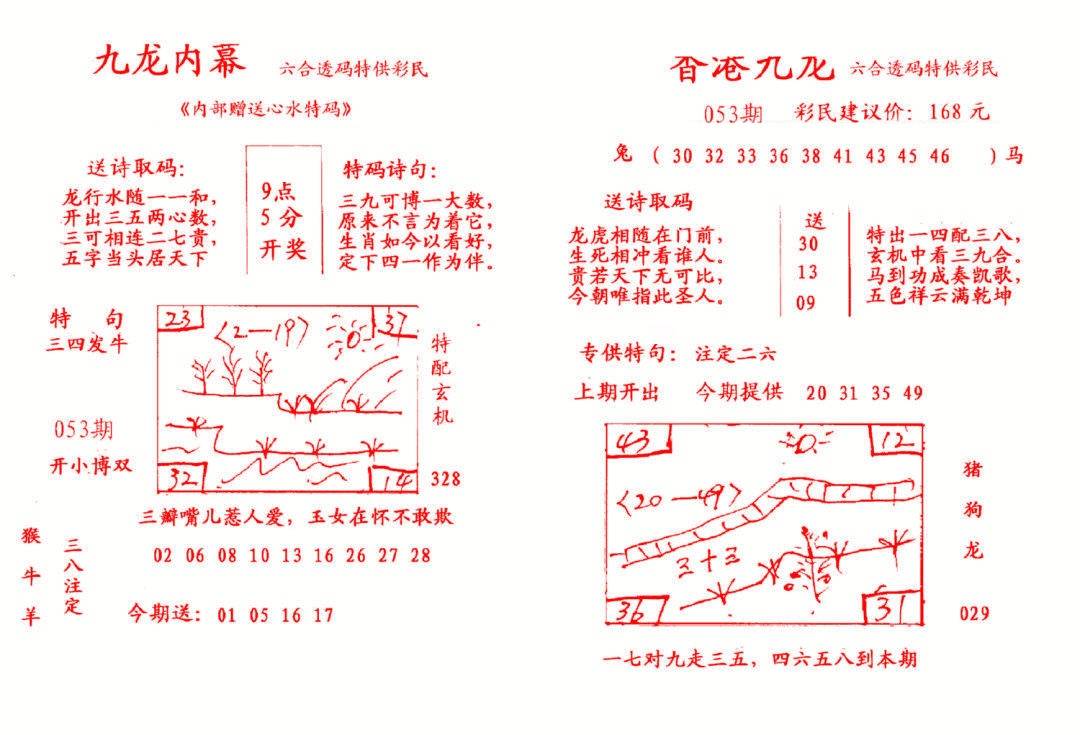 九龙内幕 六合透码特供彩民
《内部赠送心水特码》
送诗取码：
龙行水随一一和，
开出三五两心数，
三可相连二七贵，
五字当头居天下
9点
5分
开奖
特码诗句：
三九可博一大数，
原来不言为着它，
生肖如今以看好，
定下四一作为伴。
特 句
三四发牛
053期
开小博双
23
37
〈2—19〉
32
14
特配玄机
328
三瓣嘴儿惹人爱，玉女在怀不敢欺
猴牛羊
三八注定
02 06 08 10 13 16 26 27 28
今期送：01 05 16 17
香港九龙 六合透码特供彩民
053期 彩民建议价：168元
兔 （30 32 33 36 38 41 43 45 46 ）马
送诗取码
龙虎相随在门前，
生死相冲看谁人。
贵若天下无可比，
今朝唯指此圣人。
送
30
13
09
特出一四配三八，
玄机中看三九合。
马到功成奏凯歌，
五色祥云满乾坤
专供特句：注定二六
上期开出 今期提供 20 31 35 49
43
12
〈20—49〉
三十三
36
31
猪
狗
龙
029
一七对九走三五，四六五八到本期